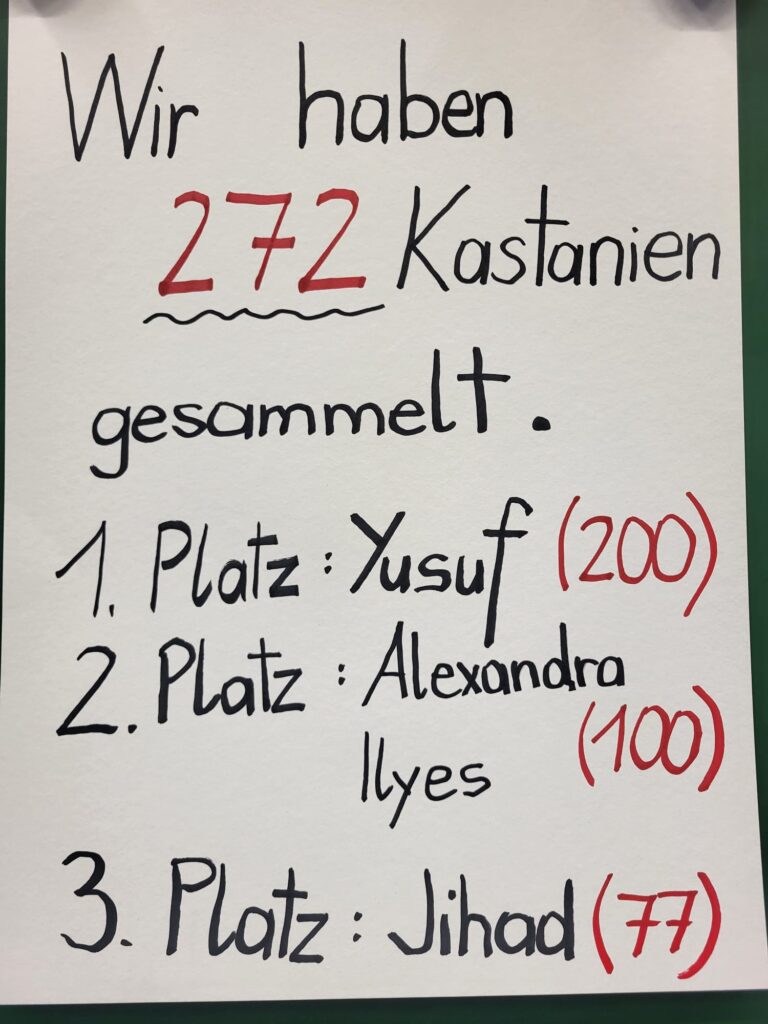 Wir haben
272 Kastanien
gesammelt.
1. Platz : Yusuf (200)
2. Platz : Alexandra
Ilyes (100)
3. Platz : Jihad (77)